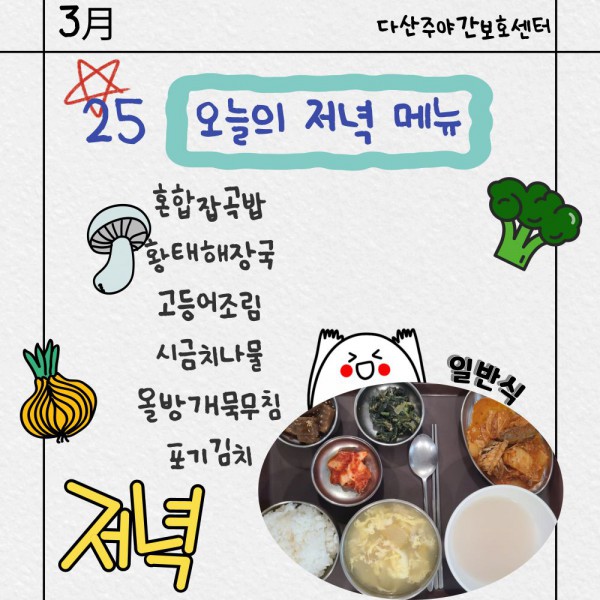 3月
다산주야간보호센터
25
오늘의 저녁 메뉴
혼합잡곡밥
황태해장국
고등어조림
시금치나물
올방개묵무침
포기김치
일반식
저녁